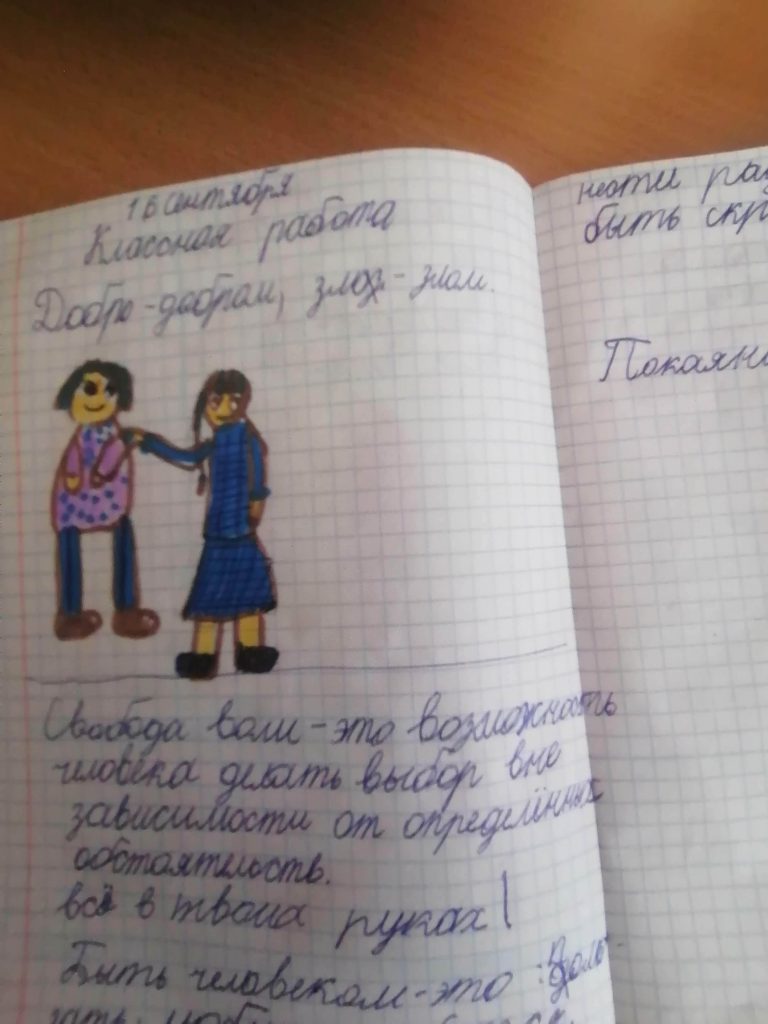 16 сентября
Классная работа
Добро - добром, злоз - злом.
Свобода воли - это возможность
человека делать выбор вне
зависимости от определённых
обстоятельств.
всё в твоих руках!
Быть человеком - это :
быть
Покаяни